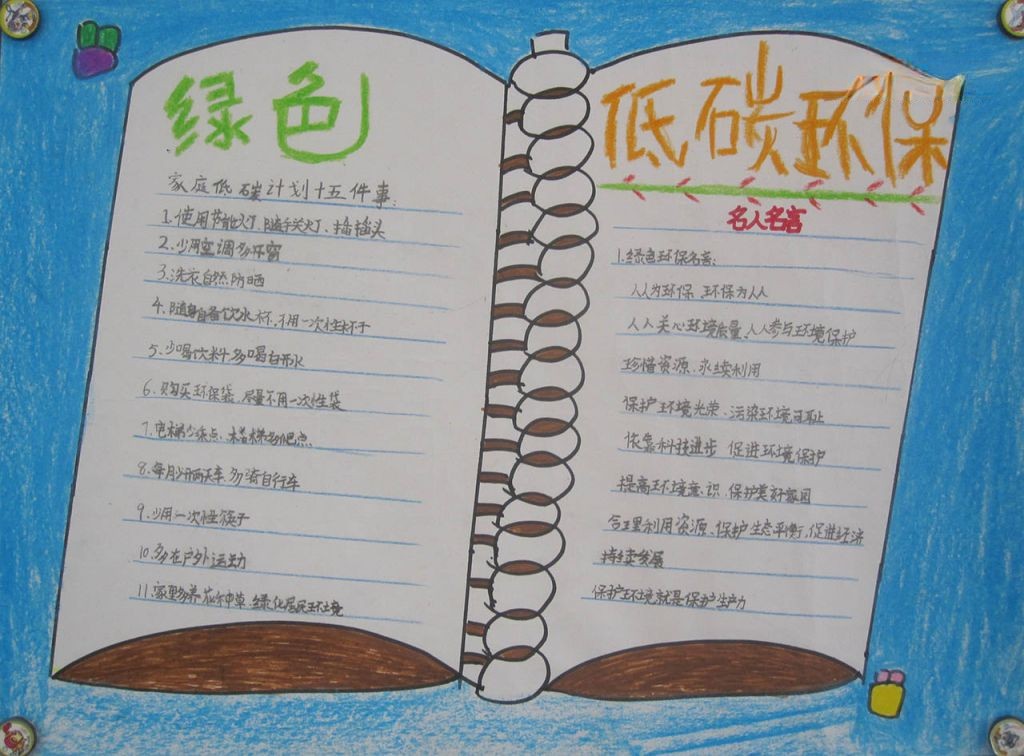 绿色
家庭低碳计划十五件事:
1.使用节能灯,随手关灯、插插头
2.少用空调多开窗
3.洗衣自然防晒
4.随身自备饮水杯,不用一次性杯子
5.少喝饮料多喝白开水
6.购买环保袋,尽量不用一次性袋
7.电梯少乘点,楼梯多爬点
8.每月少开两天车多骑自行车
9.少用一次性筷子
10.多在户外运动
11.家里多养花种草,绿化居民环境
低碳环保
名人名言
1.绿色环保名言:
人人为环保,环保为人人
人人关心环境质量,人人参与环境保护
珍惜资源,永续利用
保护环境光荣、污染环境可耻
依靠科技进步 促进环境保护
提高环境意识,保护美好家园
合理利用资源、保护生态平衡,促进经济
持续发展
保护环境就是保护生产力